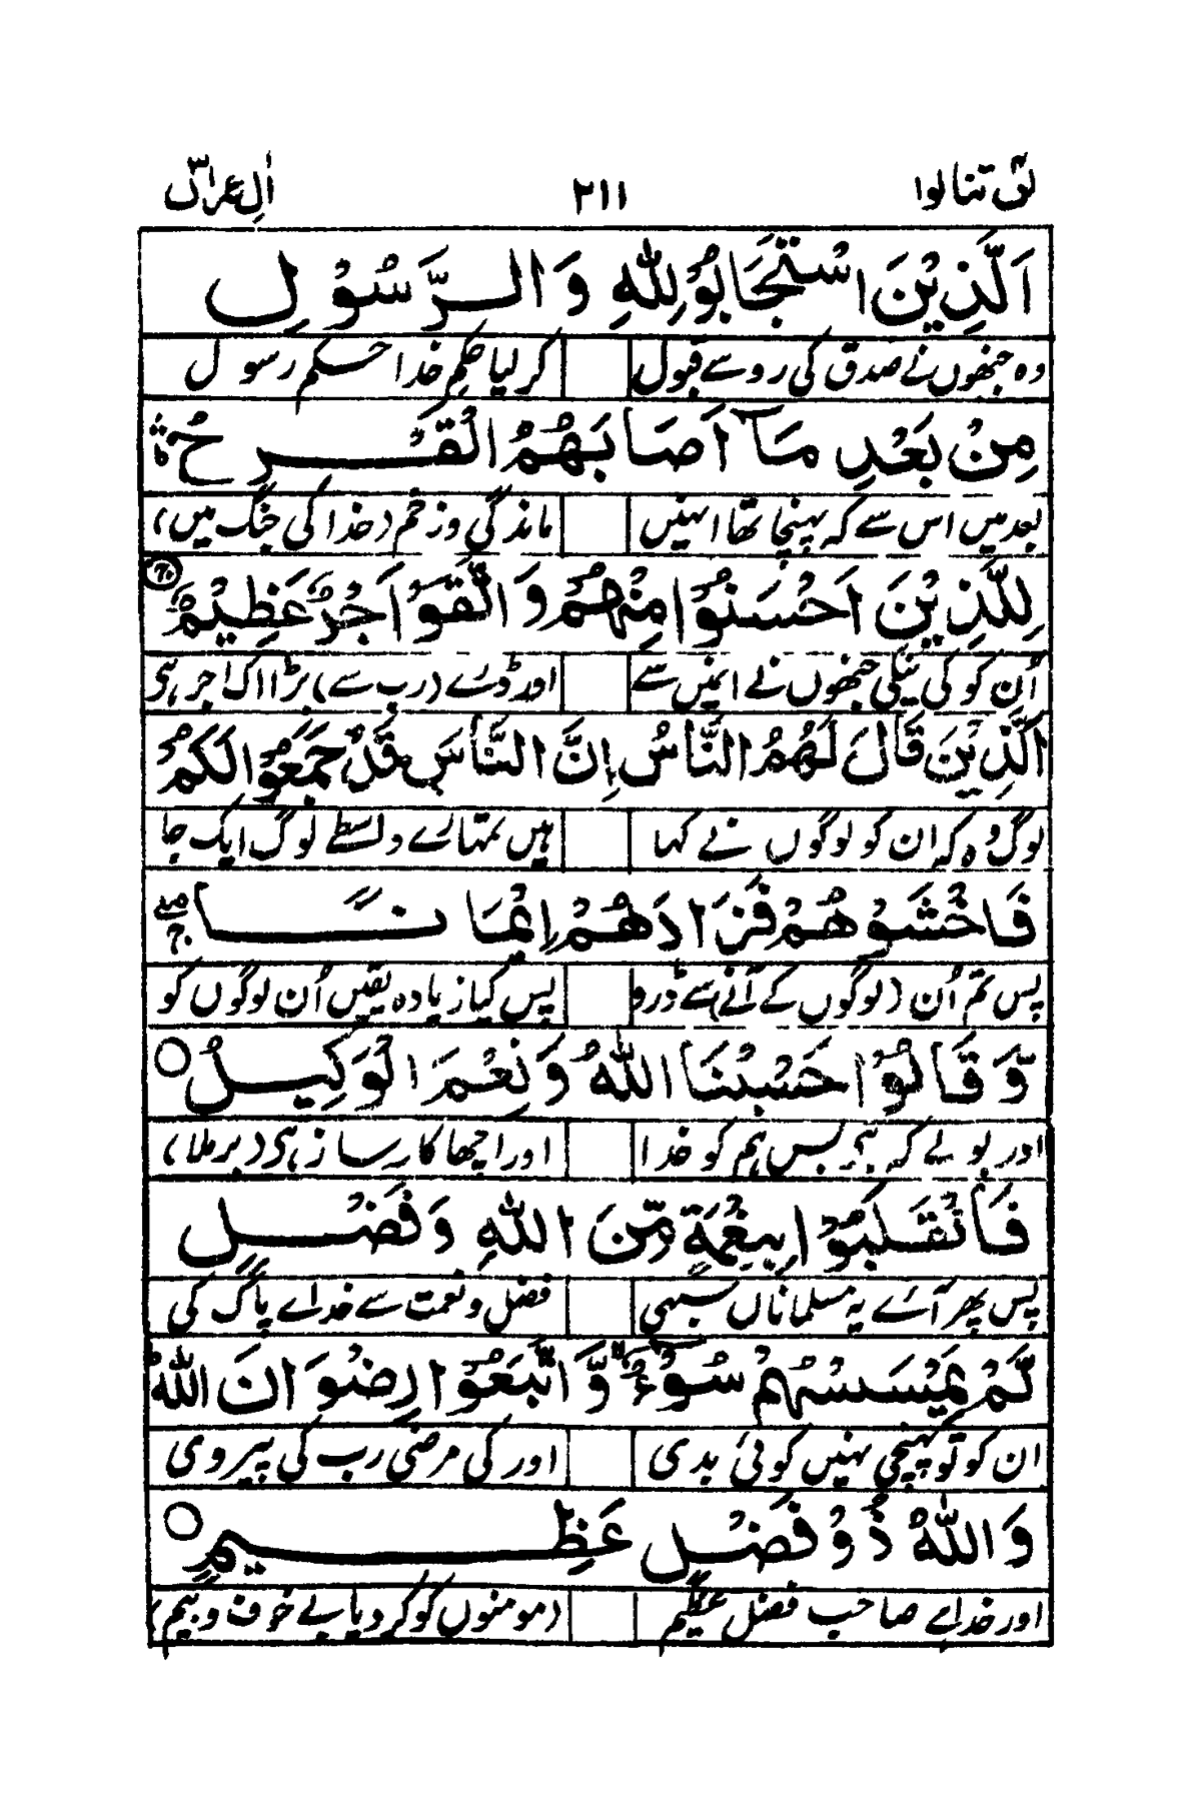 لن تنالوا ۲۱۱ اٰلِ عمرٰن ۳
اَلَّذِيْنَ اسْتَجَابُوْ لِلّٰهِ وَالرَّسُوْلِ
وہ جنھوں نے صدق کی رو سے قبول کر لیا حکمِ خدا حکم رسول
مِنْ بَعْدِ مَآ اَصَابَهُمُ الْقَرْحُ
بعد میں اس سے کہ پہنچا تھا انہیں ماندگی و زخم (خدا کی جنگ میں)
لِلَّذِيْنَ اَحْسَنُوْا مِنْهُمْ وَاتَّقَوْا اَجْرٌ عَظِيْمٌ
اُن کو کی نیکی جنھوں نے انمیں سے اور ڈرے (رب سے) بڑا اک اجر ہی
اَلَّذِيْنَ قَالَ لَهُمُ النَّاسُ اِنَّ النَّاسَ قَدْ جَمَعُوْا لَكُمْ
لوگ وہ کہ ان کو لوگوں نے کہا ہیں تمہارے واسطے لوگ ایک جا
فَاخْشَوْهُمْ فَزَادَهُمْ اِيْمَانًا
پس تم اُن (لوگوں کے آنے) سے ڈرو پس کیا زیادہ یقیں اُن لوگوں کو
وَّقَالُوْا حَسْبُنَا اللّٰهُ وَنِعْمَ الْوَكِيْلُ
اور بولے کہ ہے بس ہم کو خدا اور اچھا کارساز ہی (برملا)
فَانْقَلَبُوْا بِنِعْمَةٍ مِّنَ اللّٰهِ وَفَضْلٍ
پس پھر آئے یہ مسلماناں سبھی فضل و نعمت سے خدائے پاک کی
لَّمْ يَمْسَسْهُمْ سُوْٓءٌ وَّاتَّبَعُوْا رِضْوَانَ اللّٰهِ
ان کو تو پہنچی نہیں کوئی بدی اور کی مرضی رب کی پیروی
وَاللّٰهُ ذُوْ فَضْلٍ عَظِيْمٍ
اور خدائے صاحب فضل عظیم (مومنوں کو کر دیا بے خوف و بیم)